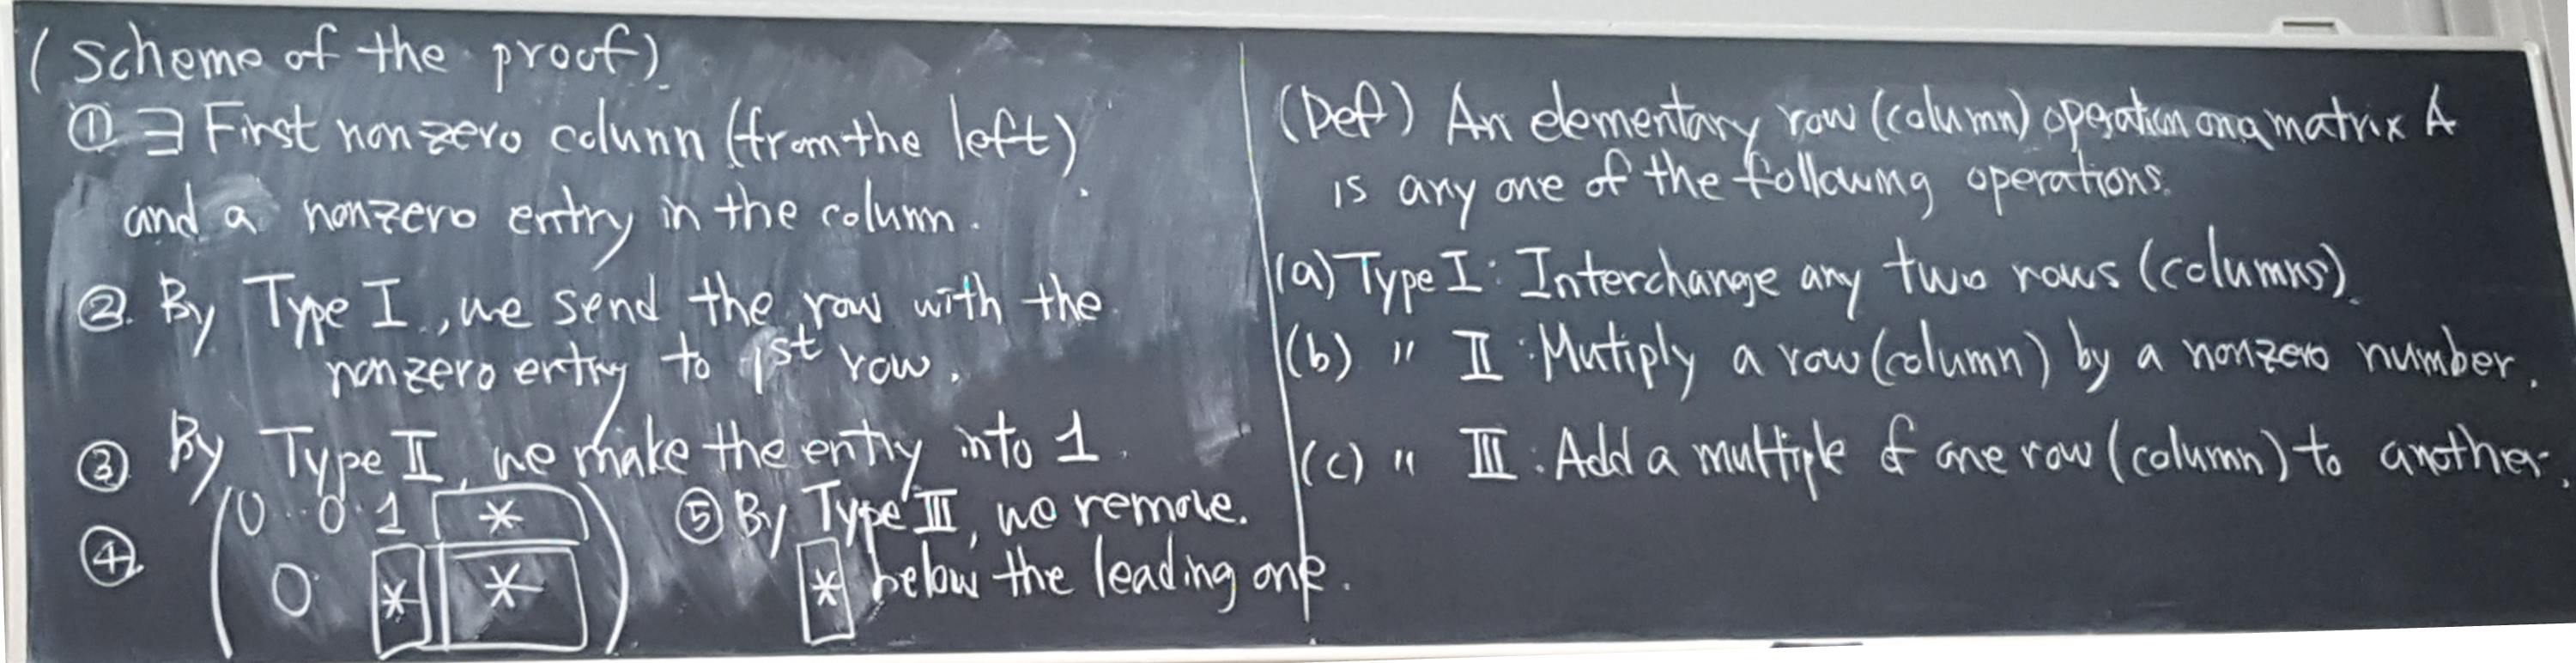 (Scheme of the proof)
① ∃ First nonzero column (from the left)
and a nonzero entry in the column.
②. By Type I., we send the row with the
nonzero entry to 1st row.
③ By Type II, we make the entry into 1.
④ ( 0 ·· 0 · 1 *
0 * * )
⑤ By Type III, we remove.
* below the leading one.
(Def) An elementary row (column) operation on a matrix A
is any one of the following operations.
(a) Type I : Interchange any two rows (columns).
(b) " II : Mutiply a row (column) by a nonzero number.
(c) " III : Add a multiple of one row (column) to another.